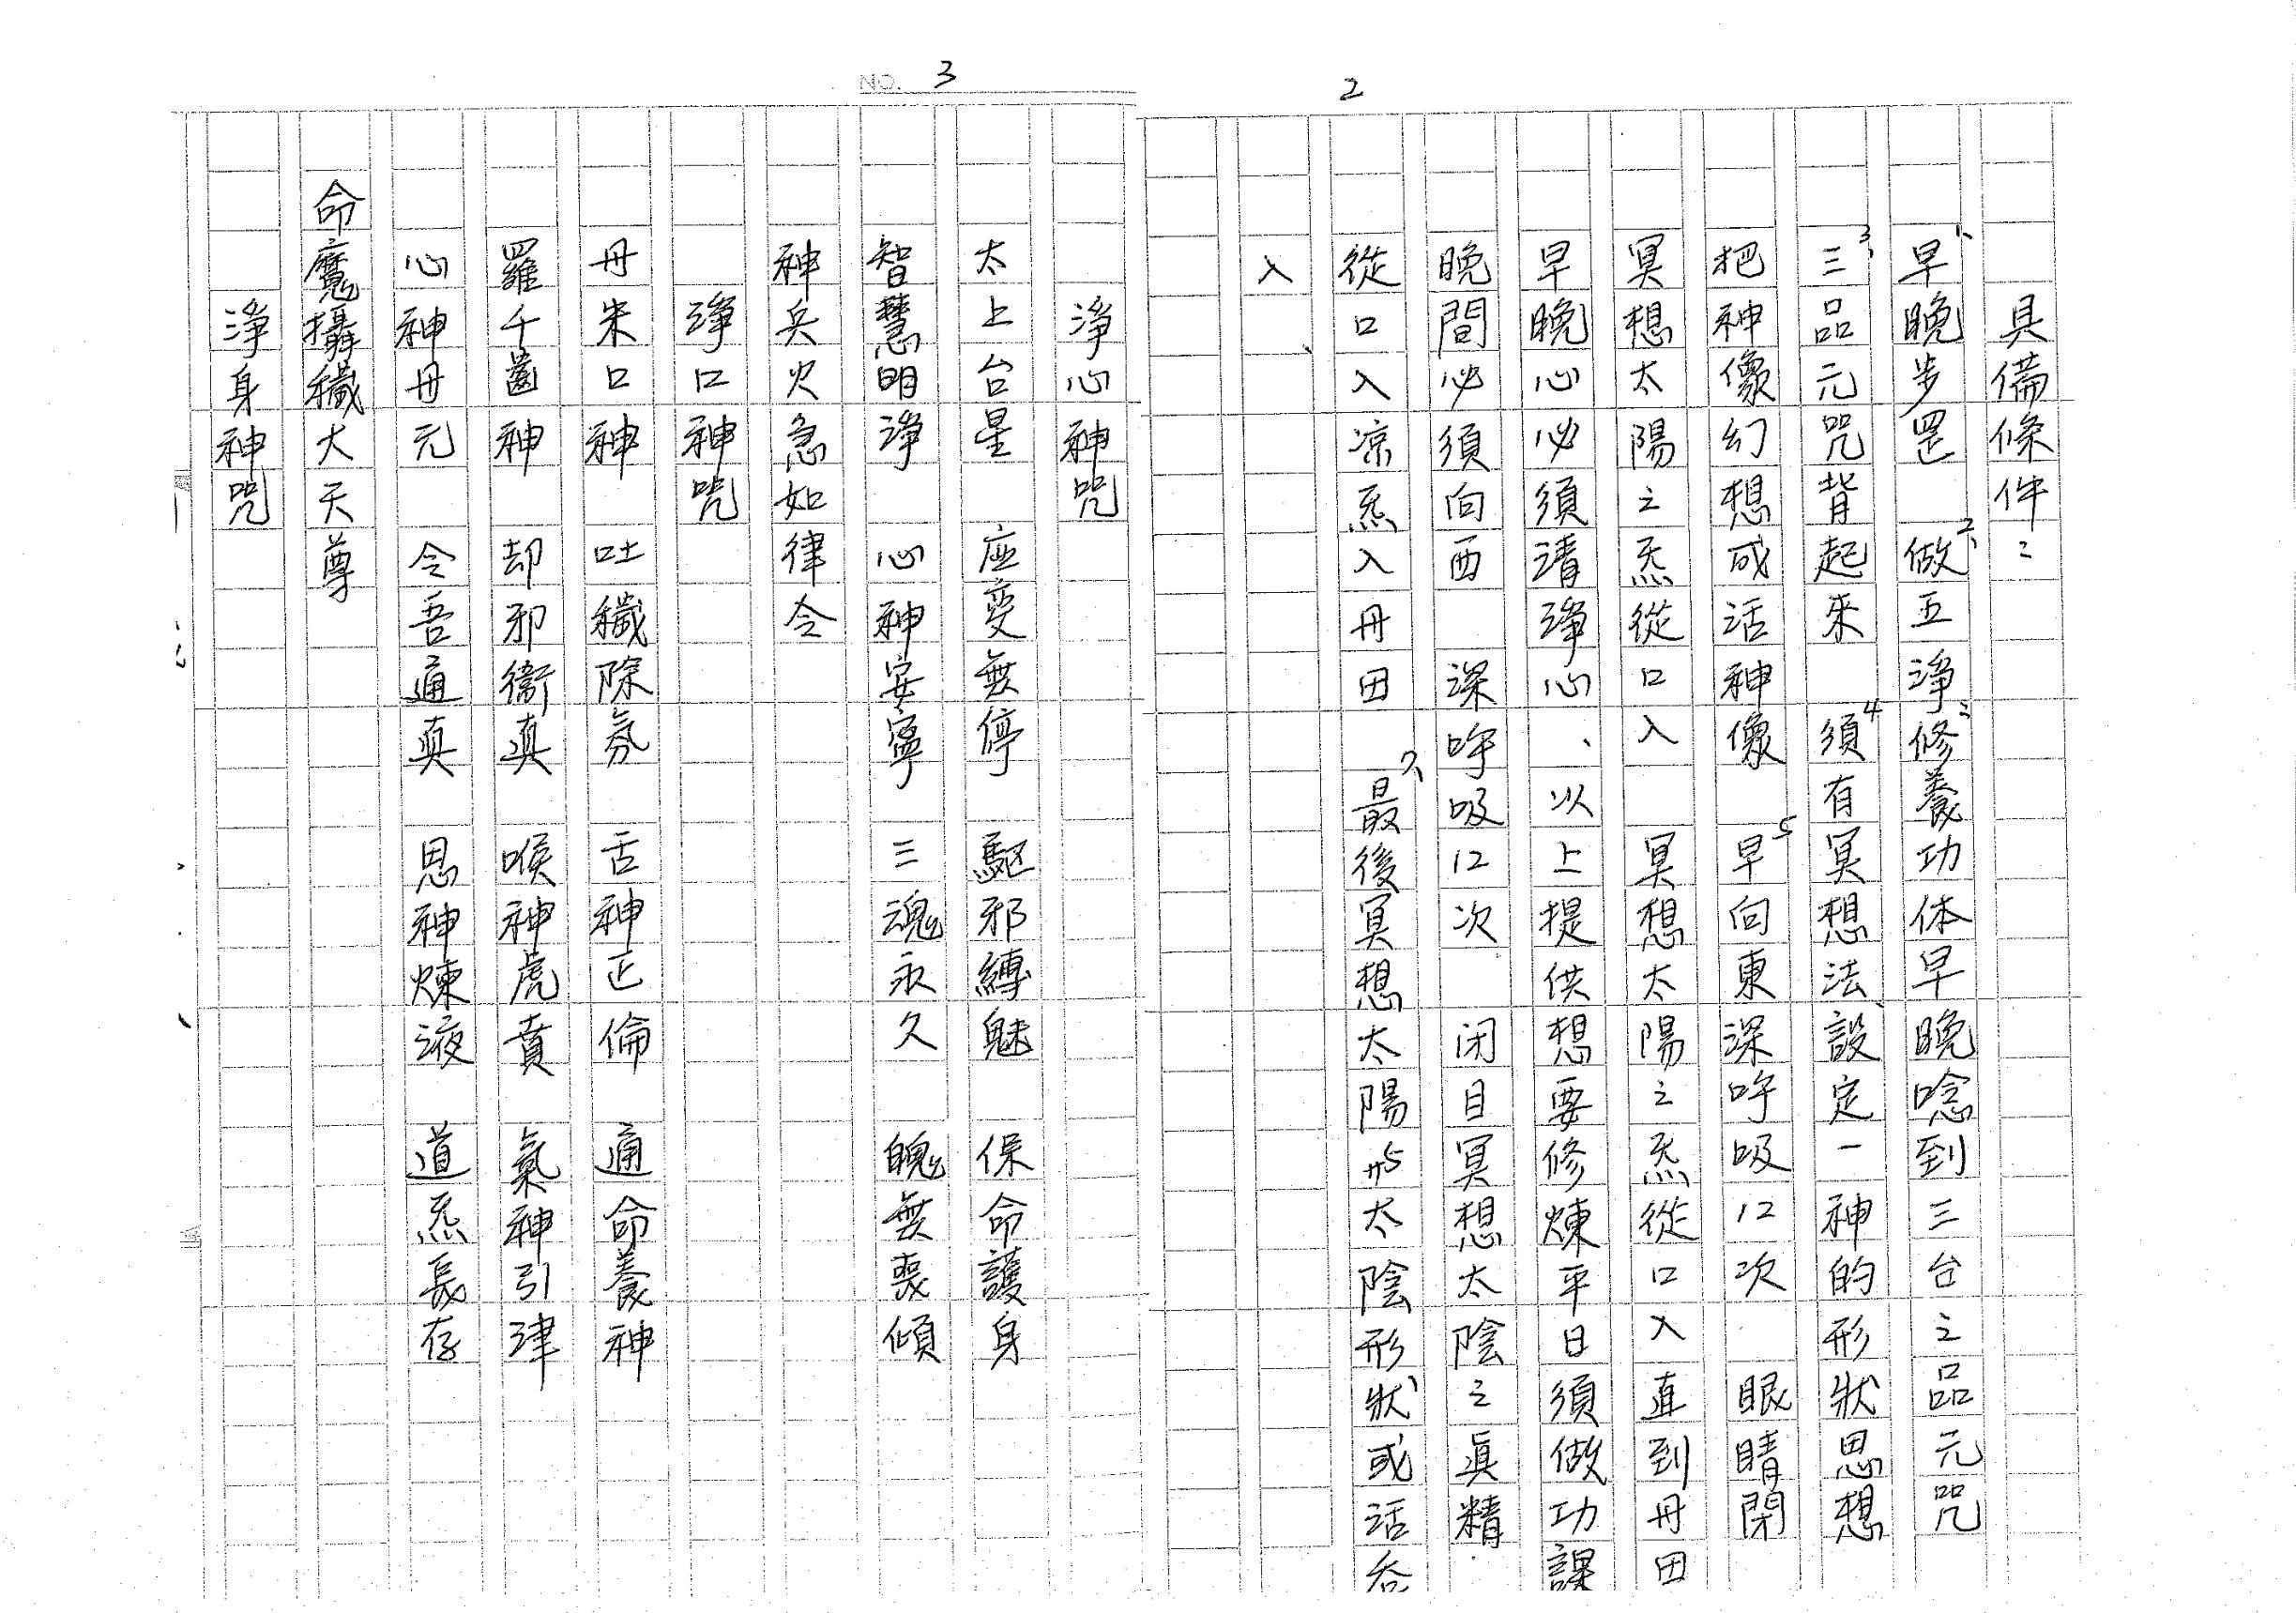 2
具備條件:
1、早晚步罡 2、做五淨修養功体早晚唸到三台之品元咒
3、三品元咒背起來 4須有冥想法、設定一神的形狀思想
把神像幻想成活神像 5早向東深呼吸12次 眼睛閉
冥想太陽之炁從口入 冥想太陽之炁從口入直到丹田
早晚心必須清淨心、以上提供想要修煉平日須做功課
晚間必須向西 深呼吸12次 闭目冥想太陰之真精
從口入凉炁入丹田 7、最後冥想太陽 太陰形狀、或活吞
入、
NO. 3
淨心神咒
太上台星 应变無停 驅邪縛魅 保命護身
智慧明淨 心神安寧 三魂永久 魄無喪傾
神兵火急如律令
淨口神咒
丹朱口神 吐穢除氛 舌神正倫 通命養神
羅千齒神 却邪衛真 喉神虎賁 氣神引津
心神丹元 令吾通真 思神煉液 道炁長存
命魔攝穢大天尊
淨身神咒